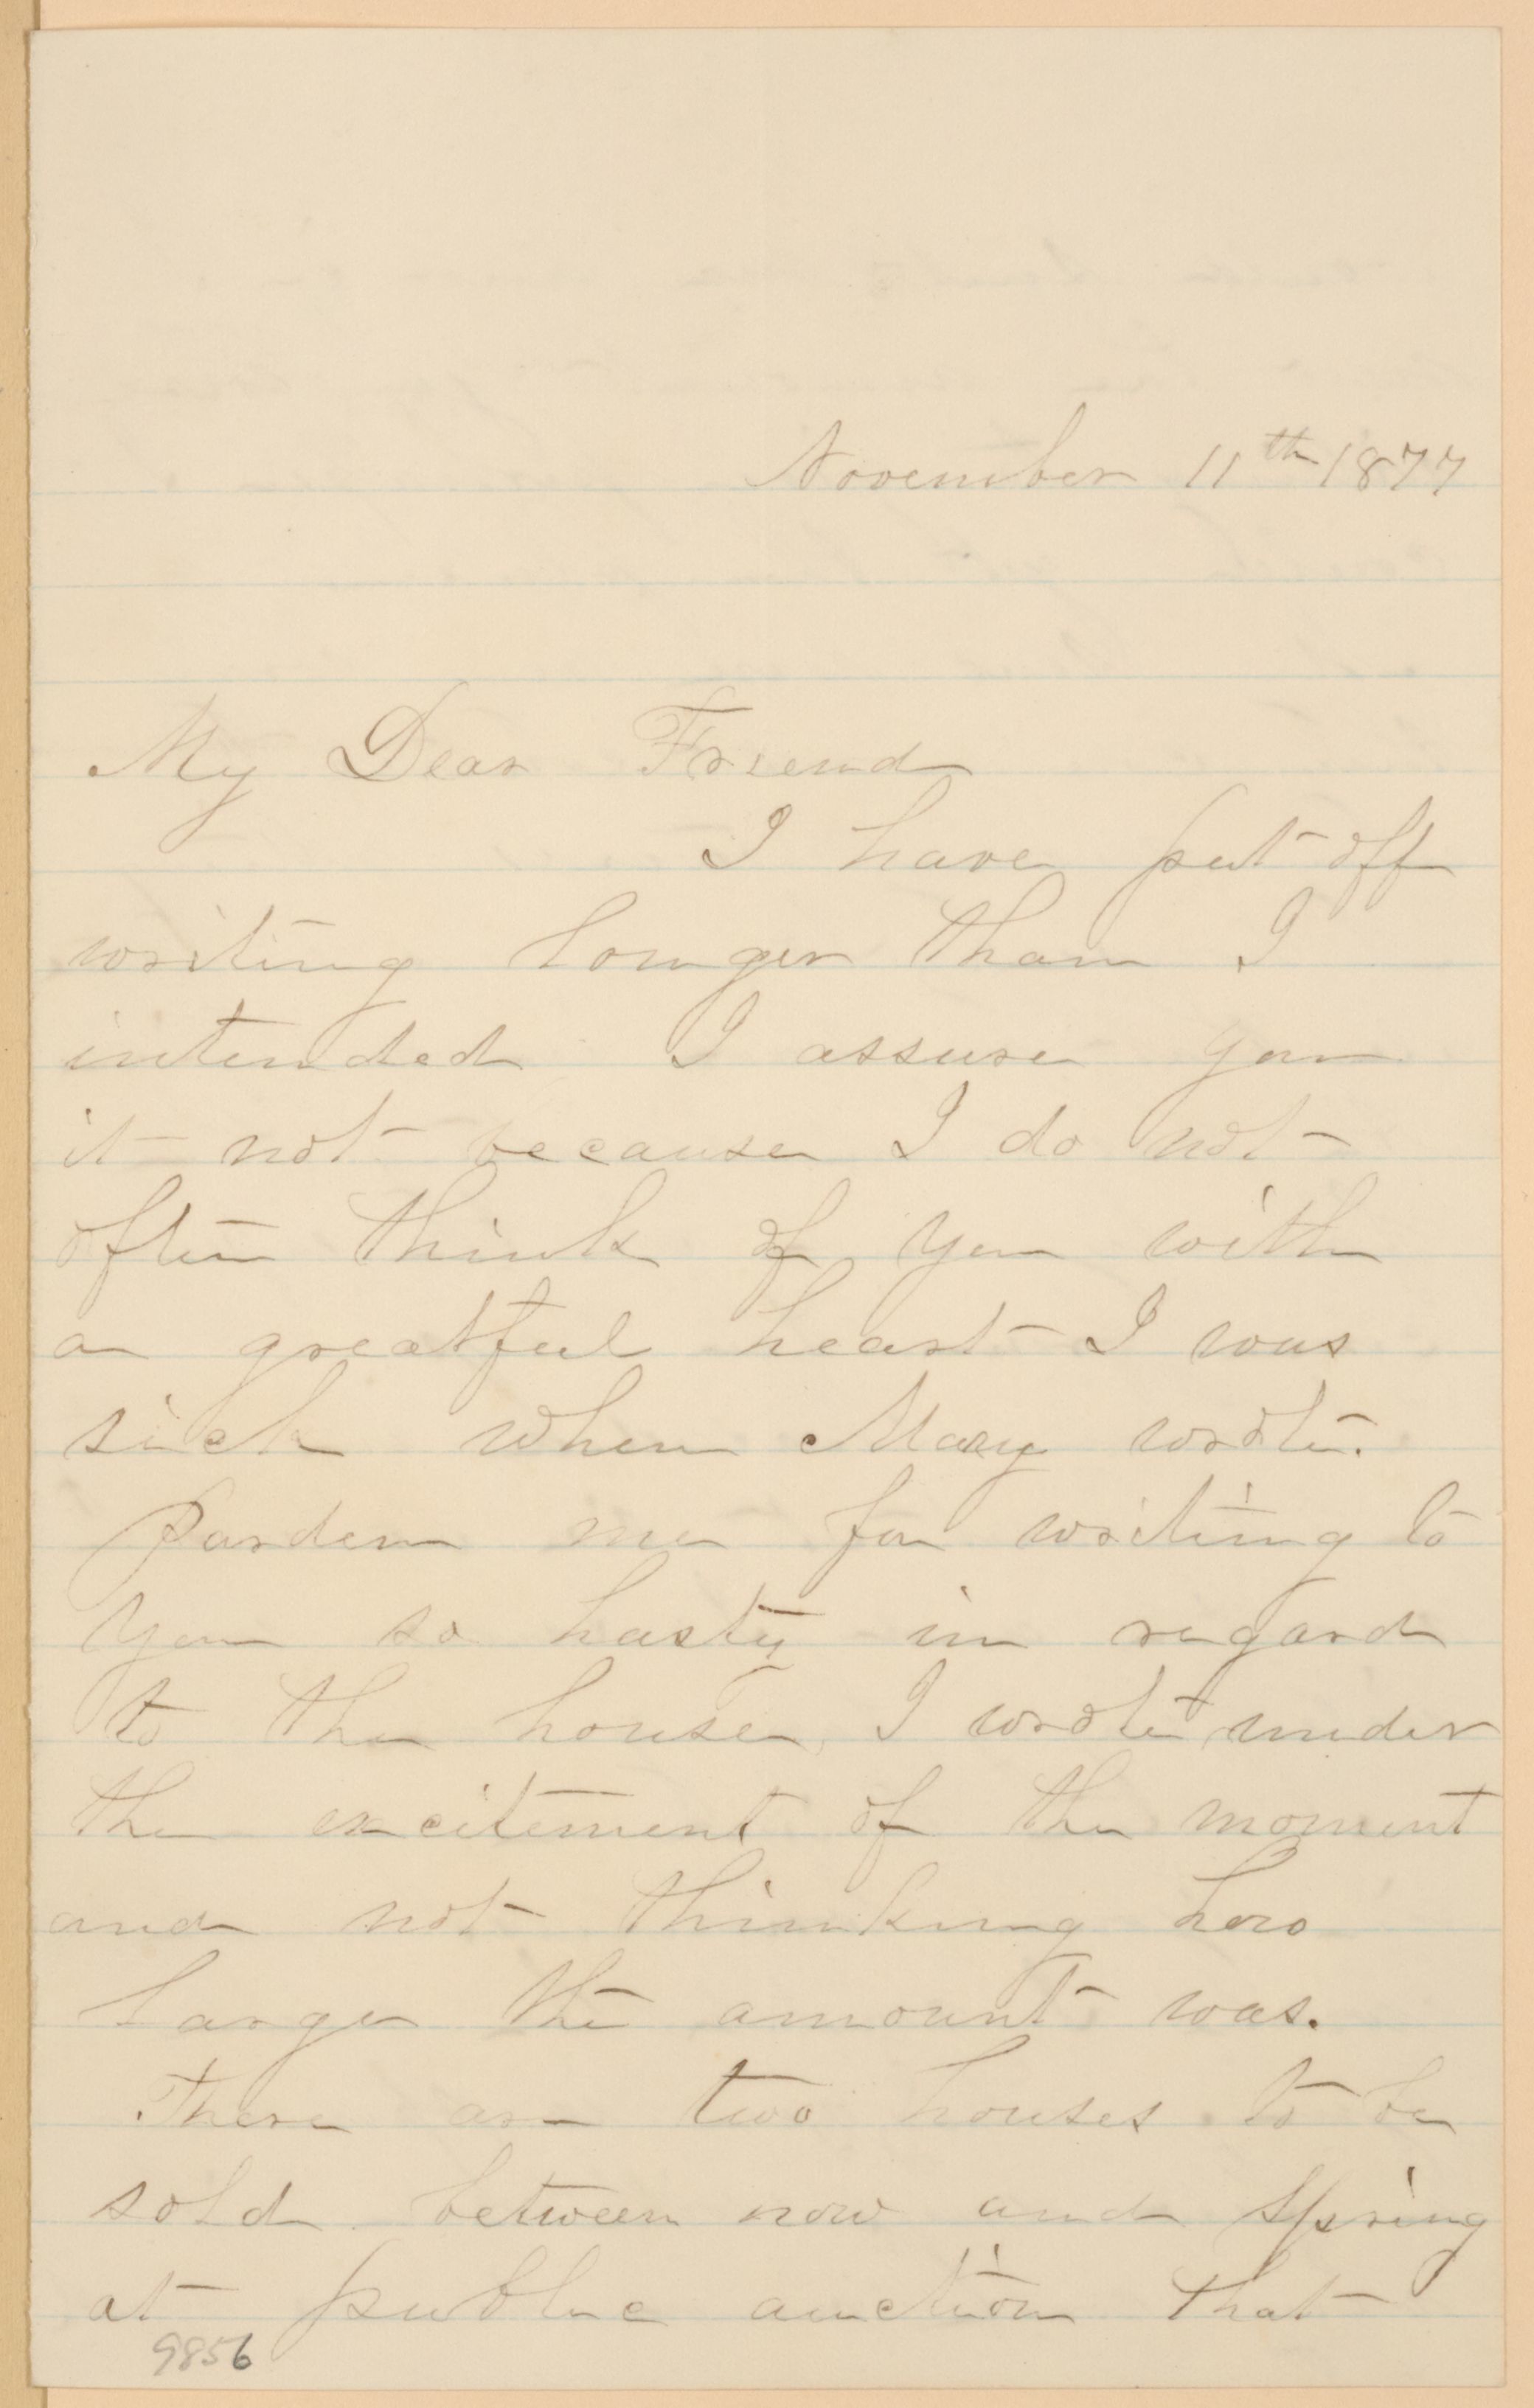 November 11th 1877
My Dear Friend
I have put off
writing longer than I
intended I assure you
it not because I do not
often think of you with
a greatful heart I was
sick when Mary wrote.
Pardon me for writing to
you so hasty in regard
to the house, I wrote under
the excitement of the moment
and not thinking how
large the amount was.
There are two houses to be
sold between now and spring
at public auction that
9856